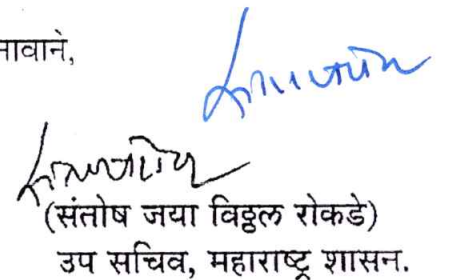 नावाने,
(संतोष जया विठ्ठल रोकडे)
उप सचिव, महाराष्ट्र शासन.